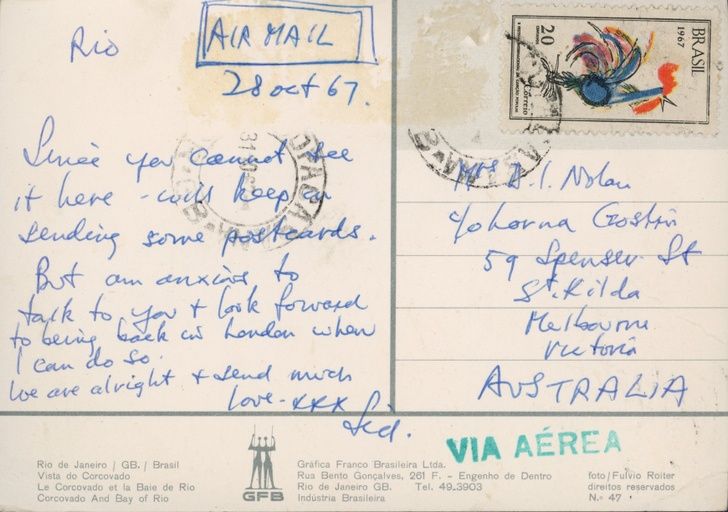 Rio
AIR MAIL
28 Oct 67.
Since you cannot see
it here - will keep on
sending some postcards.
But am anxious to
talk to you + look forward
to being back in London when
I can do so.
We are alright + send much
love - xxx
Sid.
BRASIL
1967
20
Correio
Mrs D. I. Nolan
c/o Lorna Gostin
59 Spenser St
St. Kilda
Melbourne
Victoria
AUSTRALIA
VIA AÉREA
Rio de Janeiro / GB. / Brasil
Vista do Corcovado
Le Corcovado et la Baie de Rio
Corcovado And Bay of Rio
GFB
Gráfica Franco Brasileira Ltda.
Rua Bento Gonçalves, 261 F. - Engenho de Dentro
Rio de Janeiro GB. Tel. 49.3903
Indústria Brasileira
foto/Fulvio Roiter
direitos reservados
N.º 47